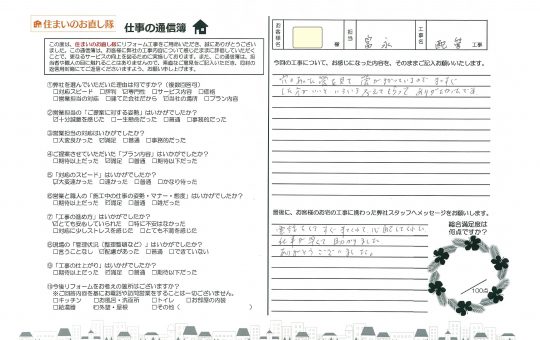 住まいのお直し隊 仕事の通信簿
この度は、住まいのお直し隊にリフォーム工事をご用命いただき、誠にありがとうござい
ました。この通信簿は、お客様に弊社の工事内容について感じたままに評価していただく
ことで、更なるサービスの向上を図るために実施しております。また、この通信簿は、担
当者や職人の目に触れることはありませんので、率直なご意見をご記入いただき、同封の
返信用封筒にてご返信くださいますよう、お願い申し上げます。
①弊社を選んでいただいた理由は何ですか?(複数回答可)
□対応スピード □評判 ☑専門性 □サービス内容 □価格
□営業担当の対応 □建てた会社だから □当社の雰囲気 □プラン内容
②営業担当の「ご提案に対する姿勢」はいかがでしたか?
☑十分誠意を感じた □一生懸命だった □普通 □事務的だった
③営業担当の対応はいかがでしたか?
□大変良かった ☑満足 □普通 □事務的だった
④ご提案させていただいた「プラン内容」はいかがでしたか?
□期待以上だった ☑満足 □普通 □期待以下だった
⑤「対応のスピード」はいかがでしたか?
☑大変速かった □速かった □普通 □かなり待った
⑥営業と職人の「施工中の仕事の姿勢・マナー・態度」はいかがでしたか?
□期待以上だった ☑満足 □普通 □期待以下だった
⑦「工事の進め方」はいかがでしたか?
☑とても安心していられた □特に不安はなかった
□対応に少しストレスを感じた □とても不満を感じた
⑧現場の「管理状況(整理整頓など)」はいかがでしたか?
□言うことなし ☑配慮があった □普通 □できていない
⑨「工事の仕上がり」はいかがでしたか?
□期待以上だった ☑満足 □普通 □期待以下だった
⑩今後リフォームをお考えの箇所はございますか?
※ご回答内容を基にお電話や訪問営業をすることは一切ございません。
□キッチン □お風呂・洗面所 □トイレ □お部屋の内装
□給湯器 □外壁・屋根 □その他( )
お客様名 様 担当 富永 工事名 配管 工事
今回の工事について、お感じになった内容を、そのままご記入お願いします。
最後に、お客様のお宅の工事に携わった弊社スタッフへメッセージをお願いします。
仕事が早くて助かりました
ありがとうございました。
総合満足度は
何点ですか?
/100点